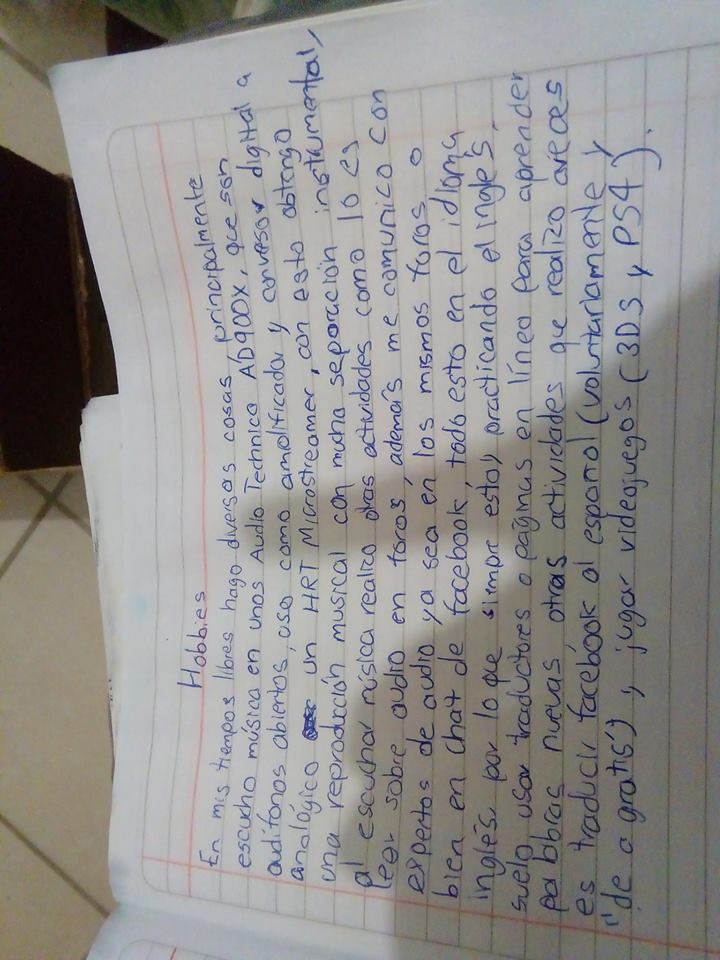 Hobbies
En mis tiempos libres hago diversas cosas, principalmente
escucho música en unos Audio Technica AD900X, que son
audífonos abiertos, uso como amplificador y conversor digital a
analógico un HRT Microstreamer, con esto obtengo
una reproducción musical con mucha separación instrumental,
al escuchar música realizo otras actividades como lo es
leer sobre audio en foros, además me comunico con
expertos de audio ya sea en los mismos foros o
bien en chat de facebook, todo esto en el idioma
inglés, por lo que siempre estoy practicando el inglés,
suelo usar traductores o páginas en línea para aprender
palabras nuevas, otras actividades que realizo aveces
es traducir facebook al español (voluntariamente y
"de a gratis"), jugar videojuegos (3DS y PS4).